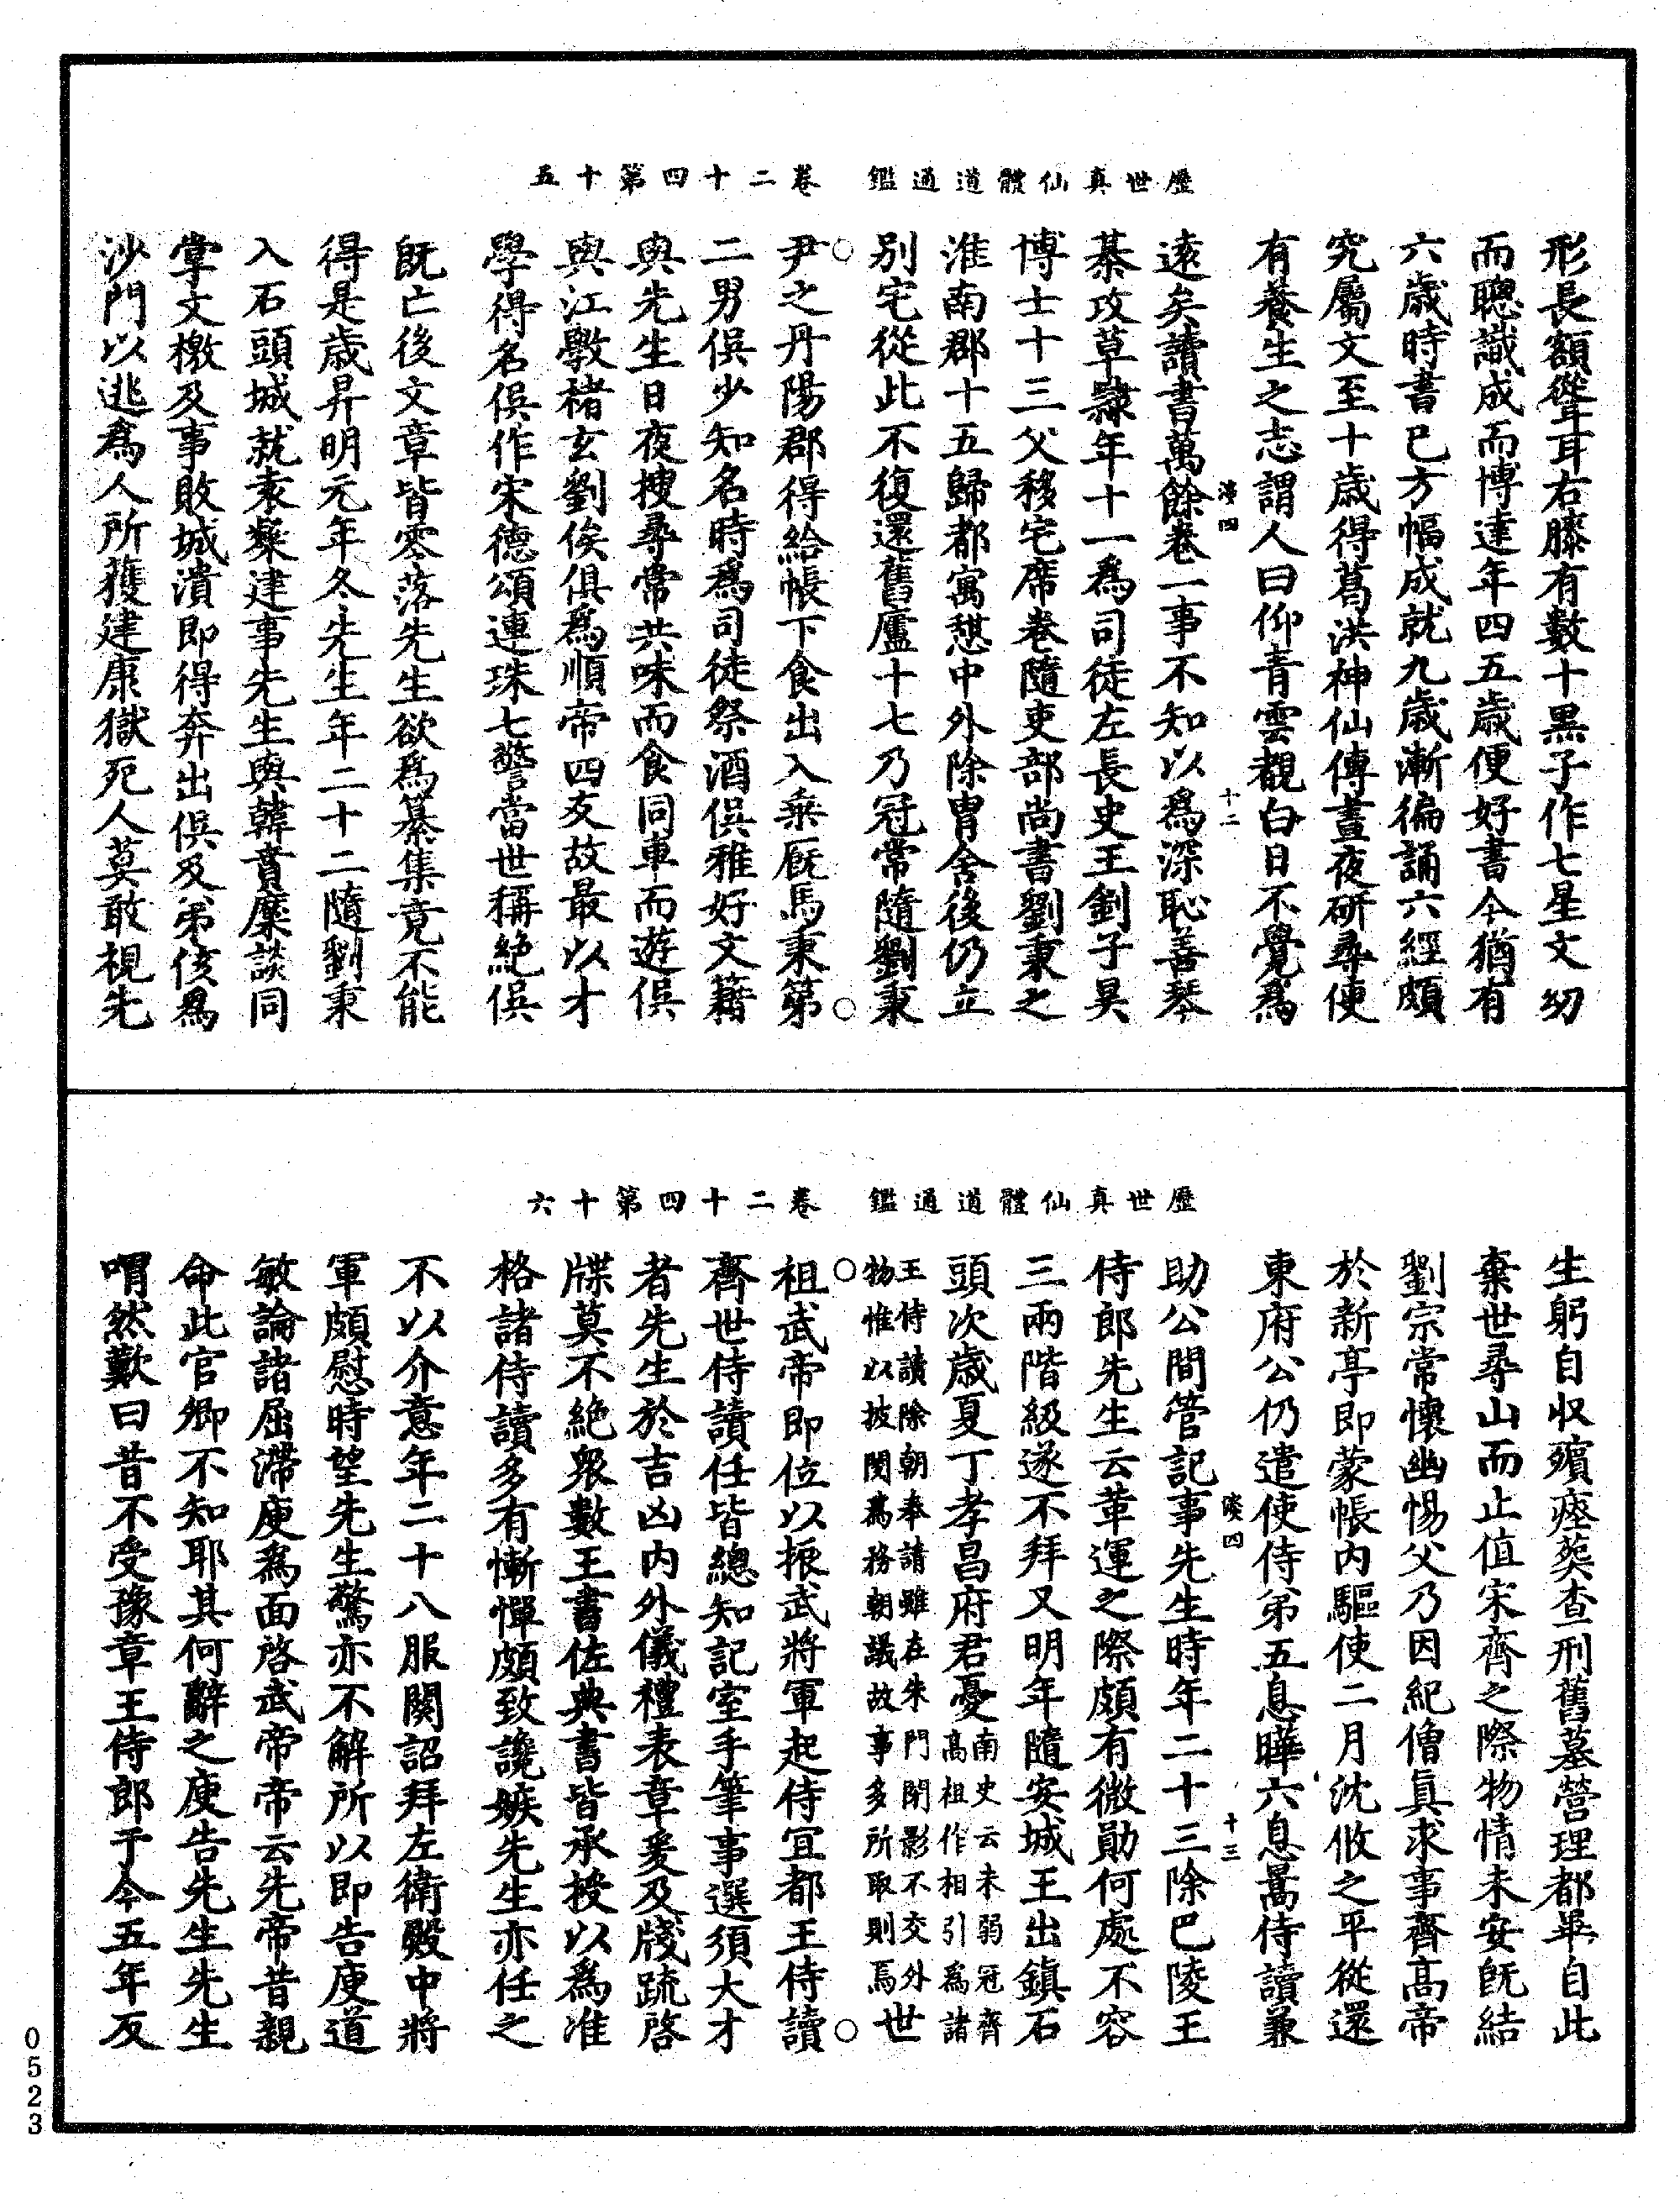 歷世真仙體道通鑑　卷二十四第十五
形長額聳耳右膝有數十黑子作七星文幼
而聰識成而博達年四五歲便好書今猶有
六歲時書已方幅成就九歲漸徧誦六經頗
究屬文至十歲得葛洪神仙傳晝夜研尋便
有養生之志謂人曰仰青雲覩白日不覺為
四　十二
遠矣讀書萬餘卷一事不知以為深恥善琴
棊攻草隸年十一為司徒左長史王釗子昊
博士十三父移宅席卷隨吏部尚書劉秉之
淮南郡十五歸都寓憇中外除胄舍後仍立
別宅從此不復還舊廬十七乃冠常隨劉秉
○　○
尹之丹陽郡得給帳下食出入乘厩馬秉第
二男俁少知名時為司徒祭酒俁雅好文籍
與先生日夜搜尋常共味而食同車而遊俁
與江斆褚玄劉俟俱為順帝四友故最以才
學得名俁作宋德頌連珠七警當世稱絕俁
既亡後文章皆零落先生欲為纂集竟不能
得是歲昇明元年冬先生年二十二隨劉秉
入石頭城就袁粲建事先生與韓賁糜談同
掌文檄及事敗城潰即得奔出俁及弟侅為
沙門以逃為人所獲建康獄死人莫敢視先
歷世真仙體道通鑑　卷二十四第十六
生躬自収殯瘞葬查刑舊墓營理都畢自此
棄世尋山而止值宋齊之際物情未安既結
劉宗常懷幽惕父乃因紀僧真求事齊高帝
於新亭即蒙帳內驅使二月沈攸之平從還
東府公仍遣使侍弟五息曄六息暠侍讀兼
四　十三
助公間管記事先生時年二十三除巴陵王
侍郎先生云革運之際頗有微勛何處不容
三兩階級遂不拜又明年隨安城王出鎮石
頭次歲夏丁孝昌府君憂南史云未弱冠齊高祖作相引為諸
王侍讀除朝奉請雖在朱門閉影不交外物惟以披閱為務朝議故事多所取則焉世
○　○
祖武帝即位以振武將軍起侍宜都王侍讀
齊世侍讀任皆總知記室手筆事選須大才
者先生於吉凶內外儀禮表章爰及牋䟽啓
牒莫不絕衆數王書佐典書皆承授以為准
格諸侍讀多有慚憚頗致讒嫉先生亦任之
不以介意年二十八服闋詔拜左衛殿中將
軍頗慰時望先生驚亦不解所以即告庾道
敏論諸屈滯庾為面啓武帝帝云先帝昔親
命此官卿不知耶其何辭之庾告先生先生
喟然歎曰昔不受豫章王侍郎于今五年反
0523